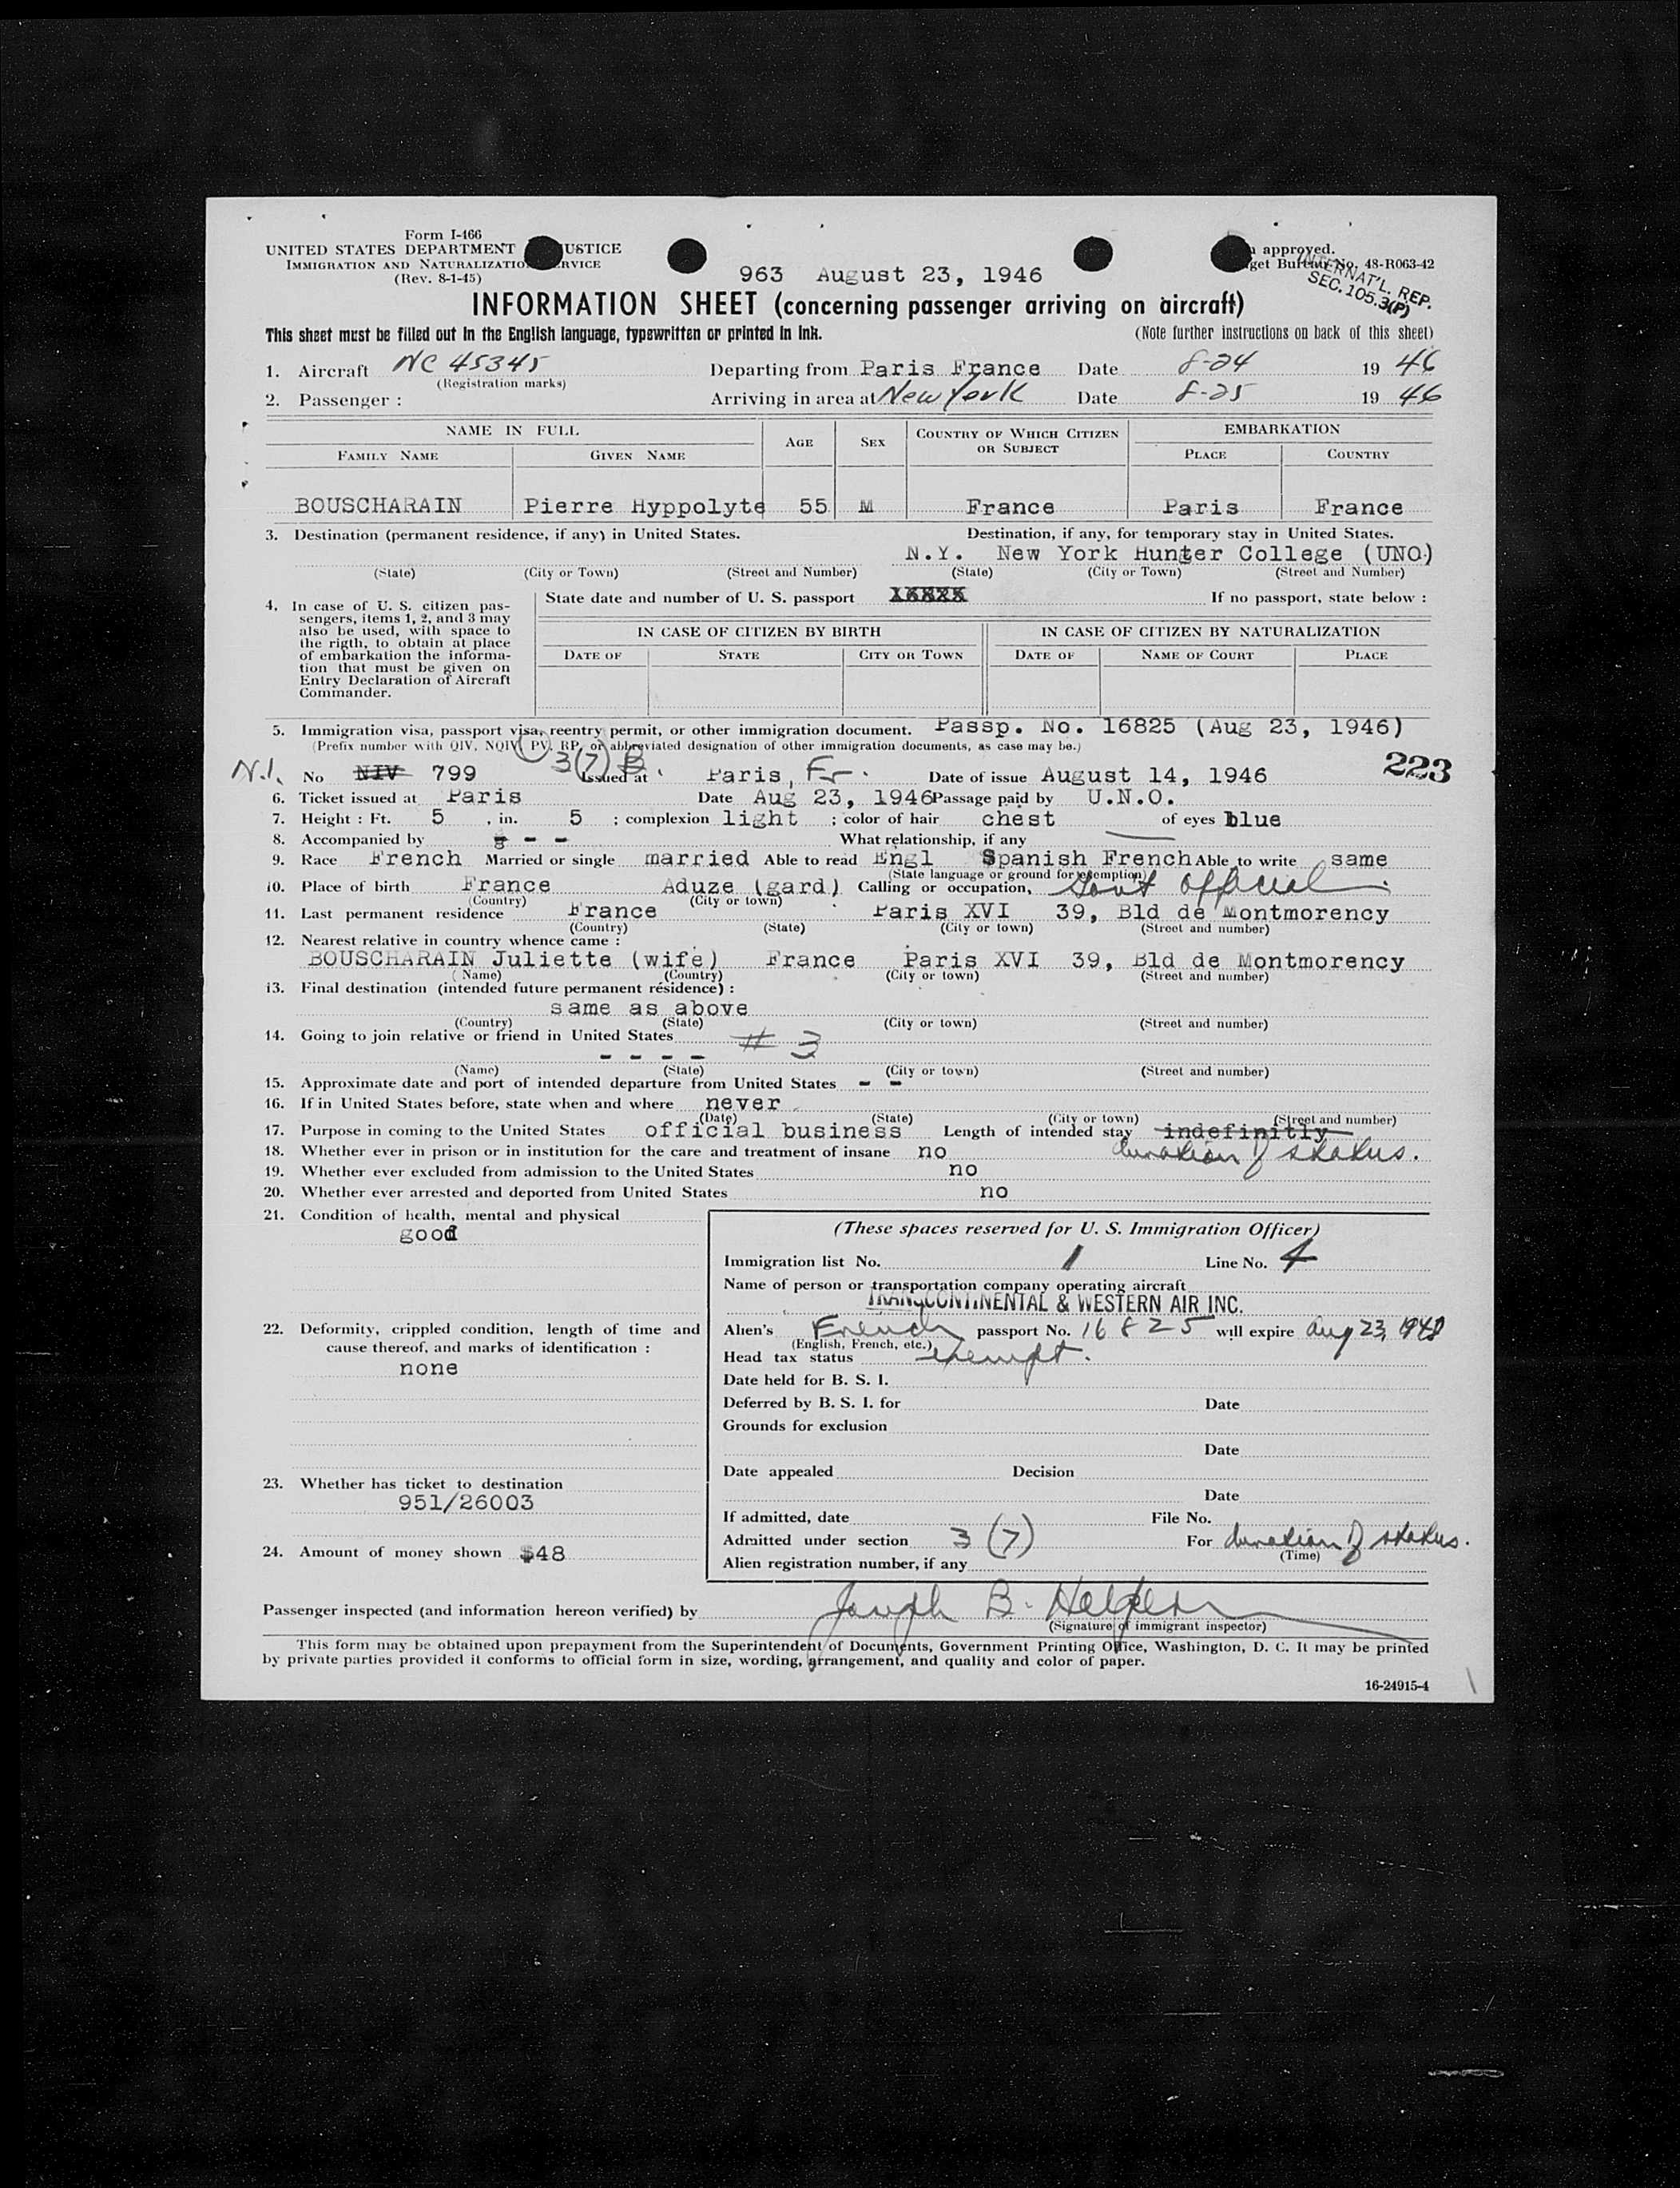 Form I-466
UNITED STATES DEPARTMENT USTICE
IMMIGRATION AND NATURALIZATIO RVICE
(Rev. 8-1-45)
approved.
get Bureau No. 48-R063-42
INTERNAT'L. REP.
SEC. 105.3(P)
963 August 23, 1946
INFORMATION SHEET (concerning passenger arriving on aircraft)
This sheet must be filled out in the English language, typewritten or printed in ink. (Note further instructions on back of this sheet)
1. Aircraft NC 45345 Departing from Paris France Date 8-24 1946
(Registration marks)
2. Passenger : Arriving in area at New York Date 8-25 1946
NAME IN FULL AGE SEX COUNTRY OF WHICH CITIZEN OR SUBJECT EMBARKATION
FAMILY NAME GIVEN NAME PLACE COUNTRY
BOUSCHARAIN Pierre Hyppolyte 55 M France Paris France
3. Destination (permanent residence, if any) in United States. Destination, if any, for temporary stay in United States.
N.Y. New York Hunter College (UNO)
(State) (City or Town) (Street and Number) (State) (City or Town) (Street and Number)
4. In case of U. S. citizen pas-
sengers, items 1, 2, and 3 may
also be used, with space to
the rigth, to obtain at place
of embarkation the informa-
tion that must be given on
Entry Declaration of Aircraft
Commander.
State date and number of U. S. passport If no passport, state below :
IN CASE OF CITIZEN BY BIRTH IN CASE OF CITIZEN BY NATURALIZATION
DATE OF STATE CITY OR TOWN DATE OF NAME OF COURT PLACE
5. Immigration visa, passport visa, reentry permit, or other immigration document. Passp. No. 16825 (Aug 23, 1946)
(Prefix number with QIV, NQIV, PV, RP, or abbreviated designation of other immigration documents, as case may be.)
3(7) B
N.I. No NIV 799 Issued at Paris, Fr. Date of issue August 14, 1946 223
6. Ticket issued at Paris Date Aug 23, 1946 Passage paid by U.N.O.
7. Height : Ft. 5 , in. 5 ; complexion light ; color of hair chest of eyes blue
8. Accompanied by - - - What relationship, if any
9. Race French Married or single married Able to read Engl Spanish French Able to write same
(State language or ground for exemption)
10. Place of birth France Aduze (gard) Calling or occupation, Govt official
(Country) (City or town)
11. Last permanent residence France Paris XVI 39, Bld de Montmorency
(Country) (State) (City or town) (Street and number)
12. Nearest relative in country whence came :
BOUSCHARAIN Juliette (wife) France Paris XVI 39, Bld de Montmorency
(Name) (Country) (City or town) (Street and number)
13. Final destination (intended future permanent résidence) :
same as above
(Country) (State) (City or town) (Street and number)
14. Going to join relative or friend in United States # 3
- - - -
(Name) (State) (City or town) (Street and number)
15. Approximate date and port of intended departure from United States - -
16. If in United States before, state when and where never
(Date) (State) (City or town) (Street and number)
17. Purpose in coming to the United States official business Length of intended stay indefinitly
18. Whether ever in prison or in institution for the care and treatment of insane no duration of status.
19. Whether ever excluded from admission to the United States no
20. Whether ever arrested and deported from United States no
21. Condition of health, mental and physical
good
22. Deformity, crippled condition, length of time and
cause thereof, and marks of identification :
none
23. Whether has ticket to destination
951/26003
24. Amount of money shown $48
(These spaces reserved for U. S. Immigration Officer)
Immigration list No. 1 Line No. 4
Name of person or transportation company operating aircraft
TRANSCONTINENTAL & WESTERN AIR INC.
Alien's French passport No. 16825 will expire Aug 23, 1948
(English, French, etc.)
Head tax status exempt.
Date held for B. S. I.
Deferred by B. S. I. for Date
Grounds for exclusion
Date
Date appealed Decision
Date
If admitted, date File No.
Admitted under section 3 (7) For duration of status.
(Time)
Alien registration number, if any
Passenger inspected (and information hereon verified) by Joseph B. Helpern
(Signature of immigrant inspector)
This form may be obtained upon prepayment from the Superintendent of Documents, Government Printing Office, Washington, D. C. It may be printed
by private parties provided it conforms to official form in size, wording, arrangement, and quality and color of paper.
16-24915-4